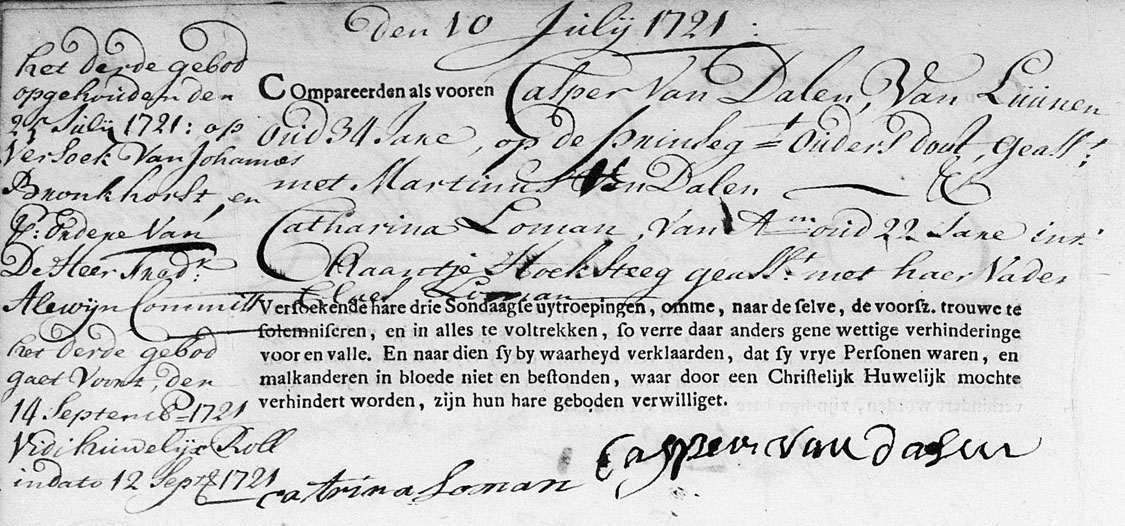 den 10 Julij 1721:
het derde gebod
opgehouden den
25 Julij 1721: op
Versoek Van Johannes
Bronkhorst, en
Van
De Heer Fredr.
Alewijn Commiss
het derde gebod
gaet Voort, den
14 Septemb. 1721
Vidi huwelijx Roll
in dato 12 Sept. 1721
COmpareerden als vooren Casper Van Dalen, Van Lüünen
oud 34 Jare, op de prinsegt ouders doot, geasst.
met Martinus Van Dalen &
Catharina Loman, Van Am oud 22 Jare int
Klaartje Hoeksteeg geasst. met haer Vader
Loman
Versoekende hare drie Sondaagse uytroepingen, omme, naar de selve, de voorsz. trouwe te
solemniseren, en in alles te voltrekken, so verre daar anders gene wettige verhinderinge
voor en valle. En naar dien sy by waarheyd verklaarden, dat sy vrye Personen waren, en
malkanderen in bloede niet en bestonden, waar door een Christelijk Huwelijk mochte
verhindert worden, zijn hun hare geboden verwilliget.
Casper van dalen
catrina Loman